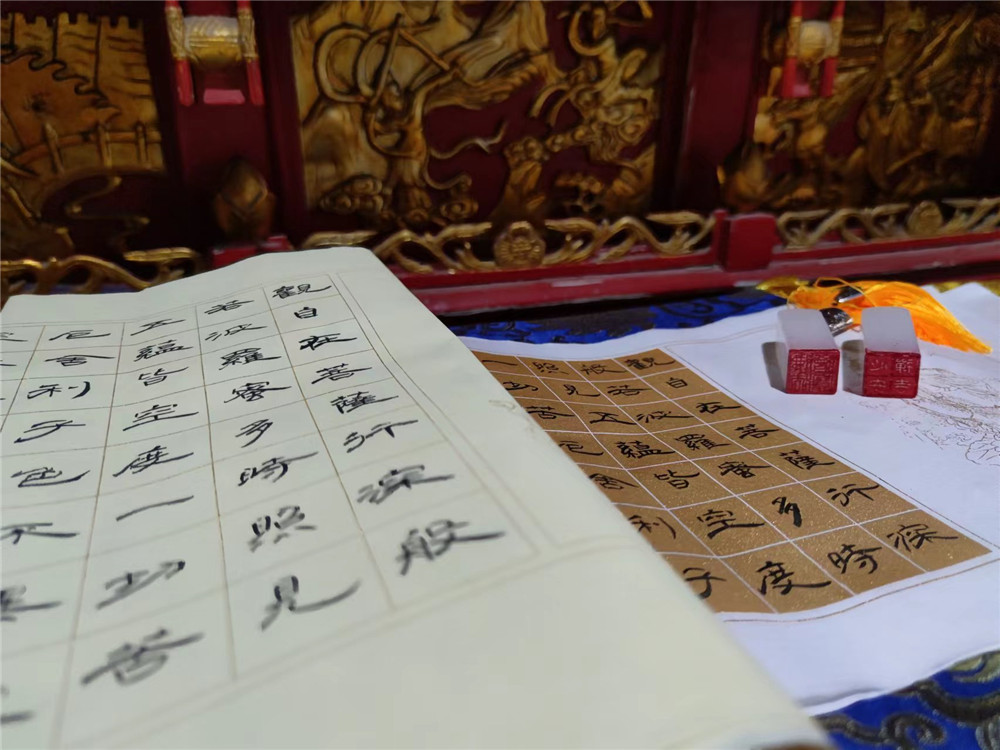 觀自在菩薩行深般
若波羅蜜多時照見
五蘊皆空度一切苦
厄舍利子色不
觀自在菩薩行深
般若波羅蜜多時
照見五蘊皆空度
一切苦厄舍利子